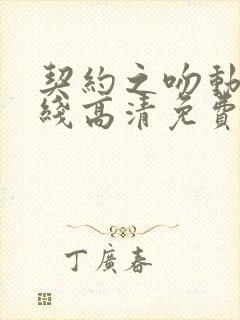 契約之吻動
綫高清免費
丁廣春